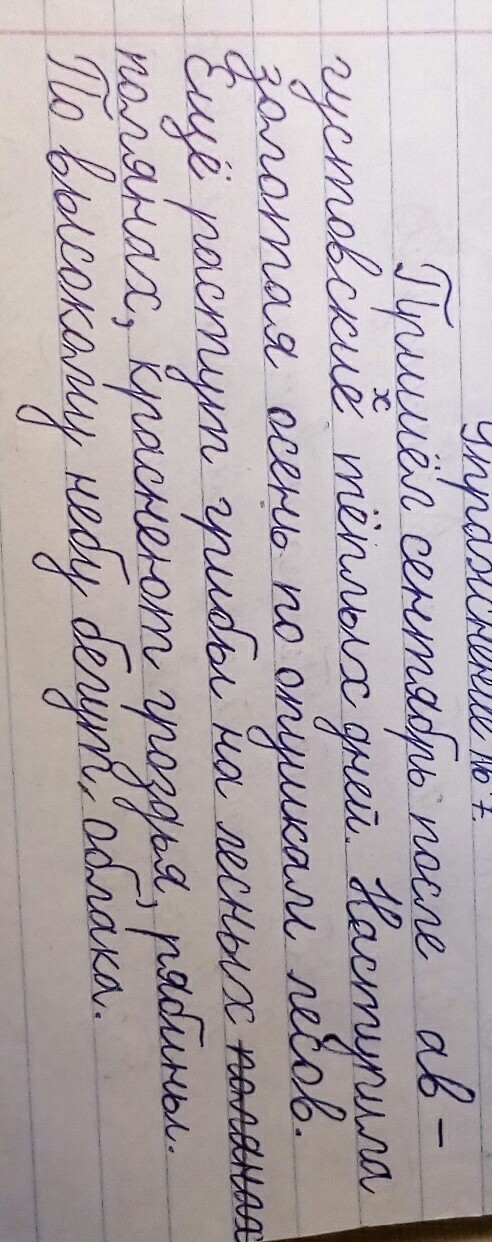 Упражнение № 7.
Пришёл сентябрь после ав-
густовских тёплых дней. Наступила
золотая осень по опушкам лесов.
Ещё растут грибы на лесных полянах
полянах, краснеют гроздья, рябины.
По высокому небу бегут, облака.